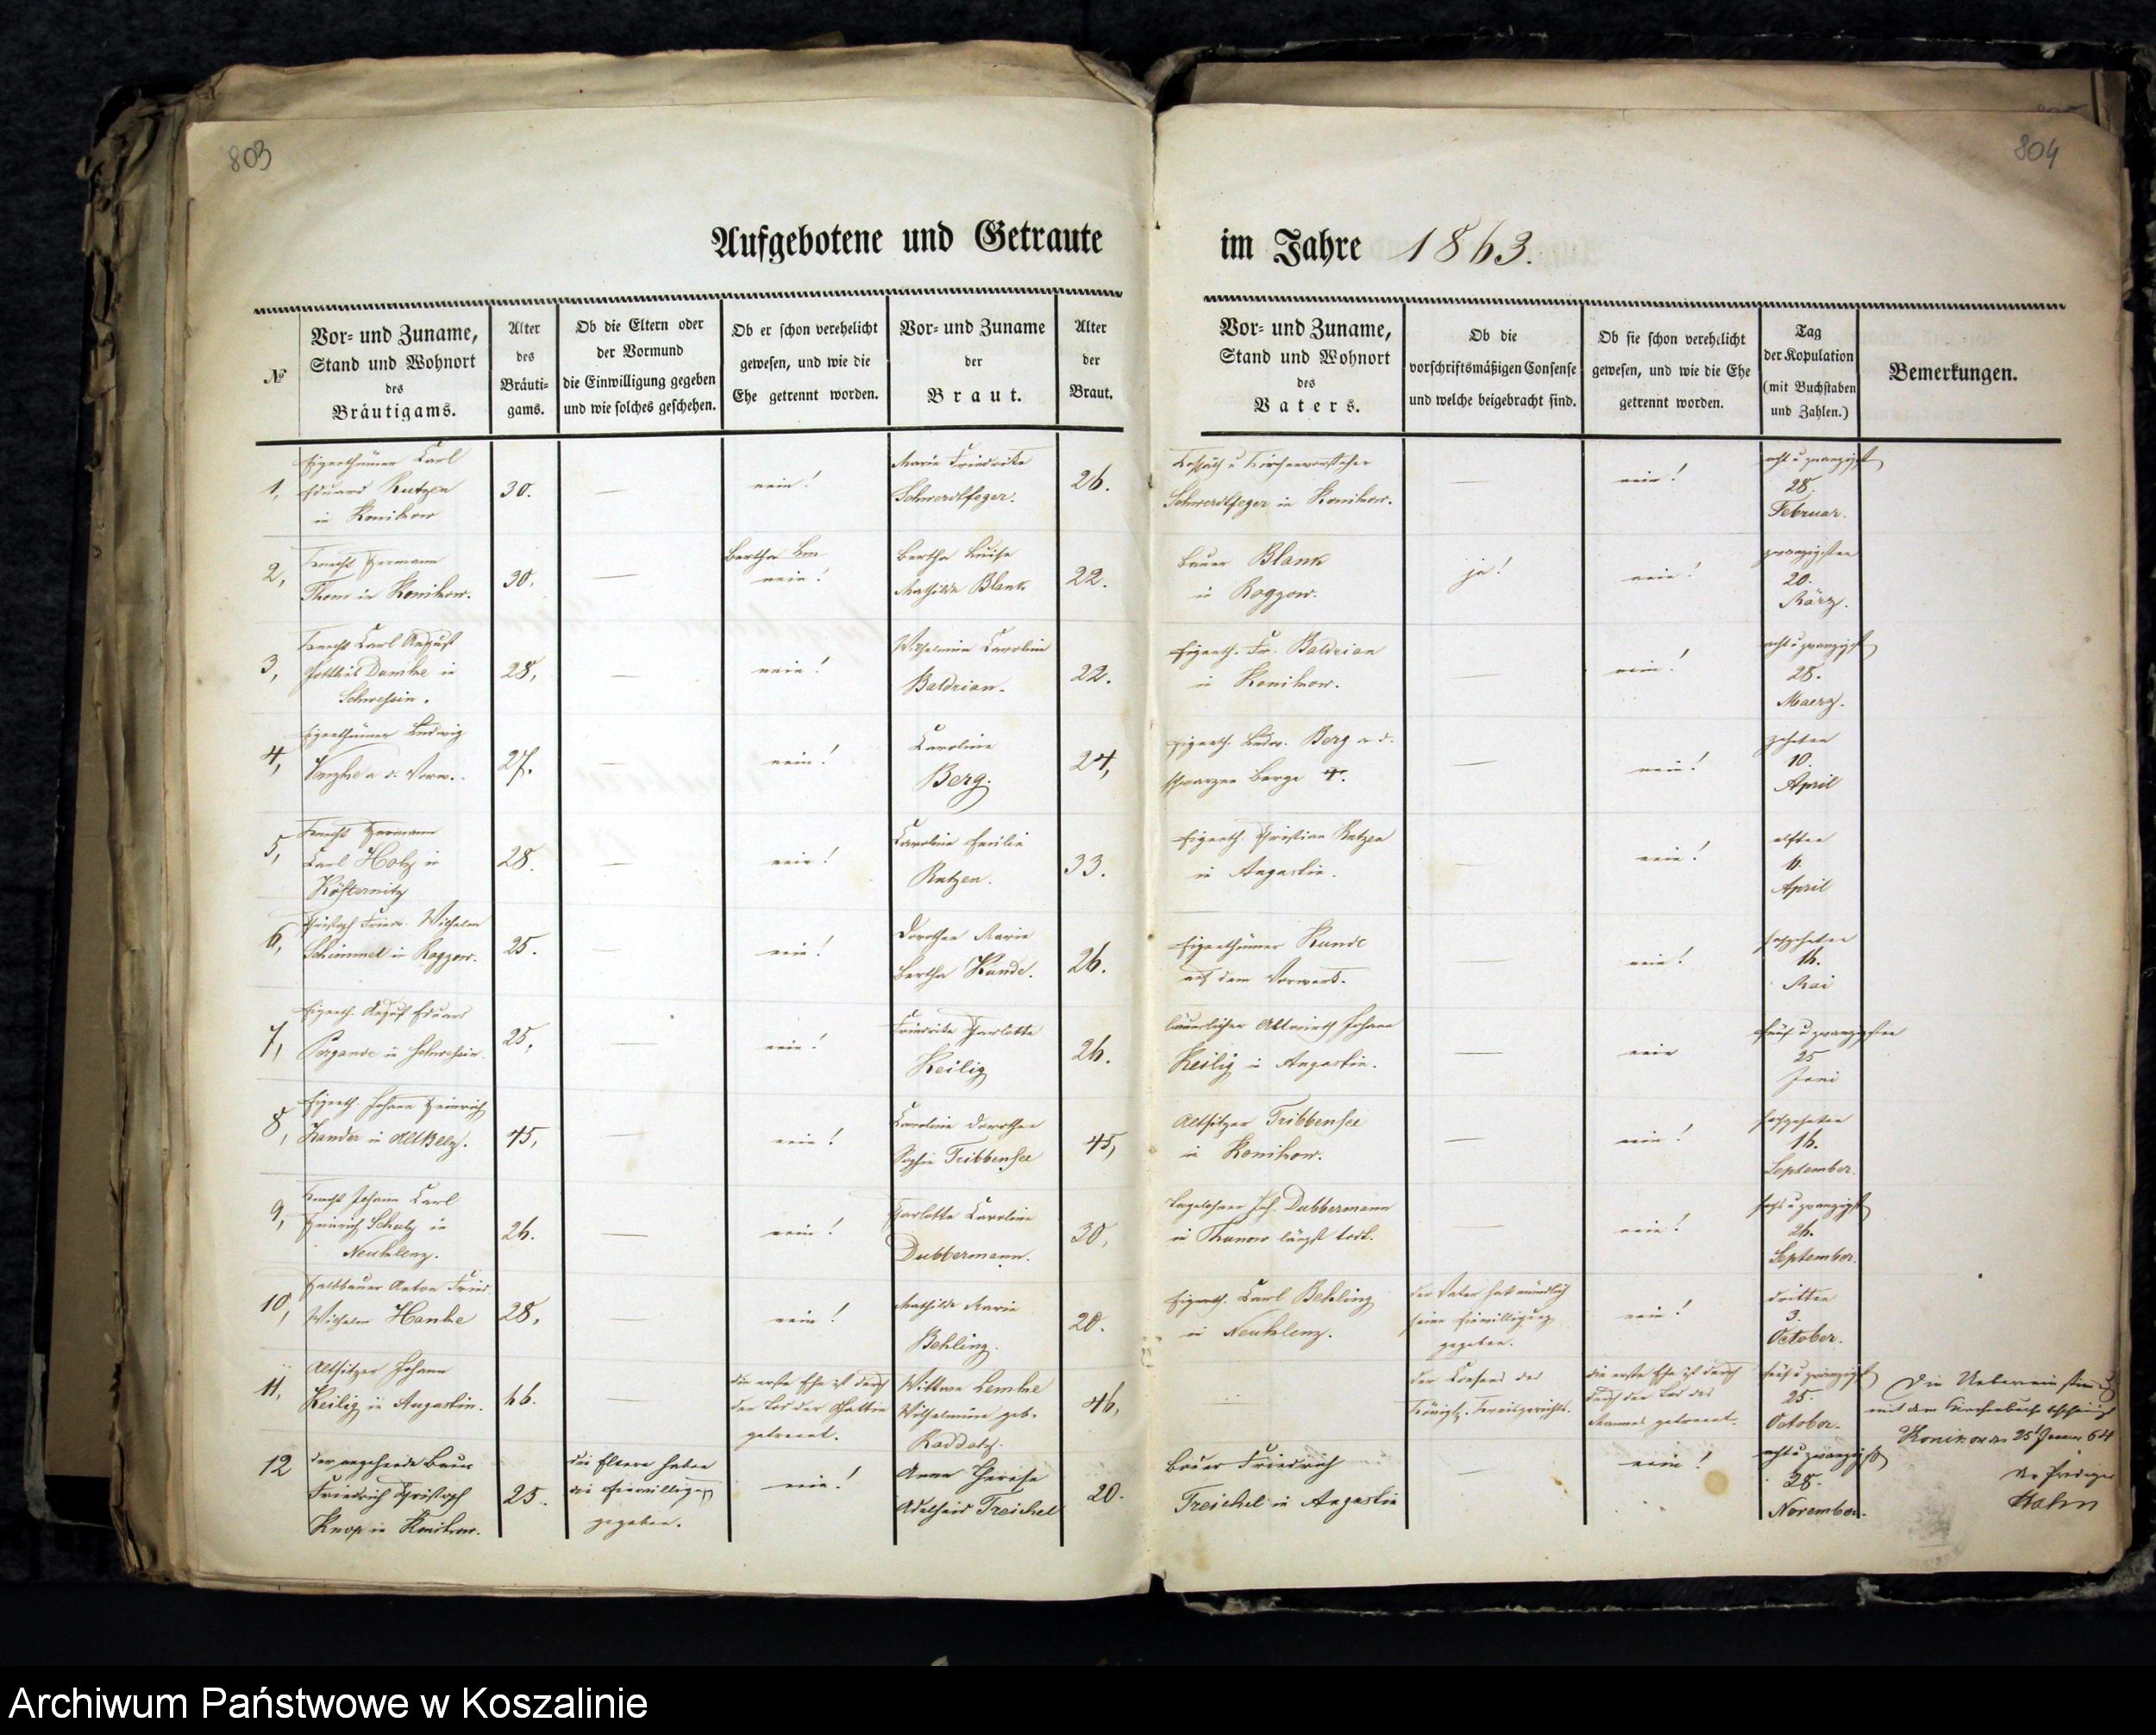 803
804
Aufgebotene und Getraute
im Jahre 1863.
№
Vor- und Zuname,
Stand und Wohnort
des
Bräutigams.
Alter
des
Bräuti-
gams.
Ob die Eltern oder
der Vormund
die Einwilligung gegeben
und wie solches geschehen.
Ob er schon verehelicht
gewesen, und wie die
Ehe getrennt worden.
Vor- und Zuname
der
Braut.
Alter
der
Braut.
Vor- und Zuname,
Stand und Wohnort
des
Vaters.
Ob die
vorschriftsmäßigen Consense
und welche beigebracht sind.
Ob sie schon verehelicht
gewesen, und wie die Ehe
getrennt worden.
Tag
der Kopulation
(mit Buchstaben
und Zahlen.)
Bemerkungen.
1,
Eigenthümer Carl
Eduard Rutzen
in Konikow
30.
—
nein!
Marie Friedrike
Schwerdtfeger.
26.
Kossäth u Kirchenvorsteher
Schwerdtfeger in Konikow.
—
nein!
acht u zwanzigst
28.
Februar.
2,
Knecht Hermann
Thom in Konikow.
30.
—
nein!
Bertha Luise
Mathilde Blank
22.
Bauer Blank
in Roggow.
ja!
nein!
zwanzigsten
20.
März.
3,
Knecht Carl August
Gottlieb Damke in
Schwessin.
28,
—
nein!
Wilhelmine Caroline
Baldrian.
22.
Eigenth. Fr. Baldrian
in Konikow.
—
nein!
acht u zwanzigst
28.
Maerz.
4,
Eigenthümer Ludwig
a. d. Vorw.
27.
—
nein!
Caroline
Berg.
24,
Eigenth. Ludw. Berg a. d.
schwarzen Berge
—
nein!
zehnten
10.
April
5,
Knecht Hermann
Carl Holz in
Kösternitz
28.
—
nein!
Caroline Emilie
Rutzen.
33.
Eigenth. Christian Rutzen
in Augustin.
—
nein!
elften
11.
April
6,
Christoph Friedr. Wilhelm
Schimmel in Roggow.
25.
—
nein!
Dorothee Marie
Bertha Kunde.
26.
Eigenthümer Kunde
auf dem Vorwerk.
—
nein!
sechzehnten
16.
Mai
7,
Eigenth. August Eduard
Pergande in Schwessin.
25,
—
nein!
Friedrike Charlotte
Keilig
26.
bäuerlicher Altwirth Johann
Keilig in Augustin.
—
nein
fünf u zwanzigsten
25
Juni
8,
Eigenth. Johann Heinrich
Zander in Alt Belz.
45,
—
nein!
Caroline Dorothee
Sophie Tribbensee
45,
Altsitzer Tribbensee
in Konikow.
—
nein!
sechzehnten
16.
September.
9,
Knecht Johann Carl
Heinrich Schulz in
Neuklenz.
26.
—
nein!
Charlotte Caroline
Dubbermann.
30,
Tagelöhner Joh. Dubbermann
in Thunow längst todt.
—
nein!
sechs u zwanzigst
26.
September.
10,
Halbbauer Anton Fried.
Wilhelm Hanke
28,
—
nein!
Mathilde Marie
Behling.
20.
Eigenth. Carl Behling
in Neuklenz.
der Vater hat mündlich
seine Einwilligung
gegeben.
nein!
dritten
3.
October.
11,
Altsitzer Johann
Keilig in Augustin.
66.
—
die erste Ehe ist durch
den Tod der Gattin
getrennt.
Wittwe Lemke
Wilhelmine geb.
Raddatz.
46,
der Consens des
Königl. Kreisgerichts.
die erste Ehe ist durch
durch den Tod des
Mannes getrennt.
fünf u zwanzigst
25.
October.
Die Uebereinstimmung
mit dem Kirchenbuche bescheinigt
Konikow den 25 Januar 64
der Prediger
Hahn
12
der angehende Bauer
Friedrich Christoph
Knop in Konikow.
25.
die Eltern haben
die Einwilligung
gegeben.
nein!
Anna Therese
Adelheid Treichel
20.
Bauer Friedrich
Treichel in Augustin
—
nein!
acht u zwanzigst
28.
November.
Archiwum Państwowe w Koszalinie